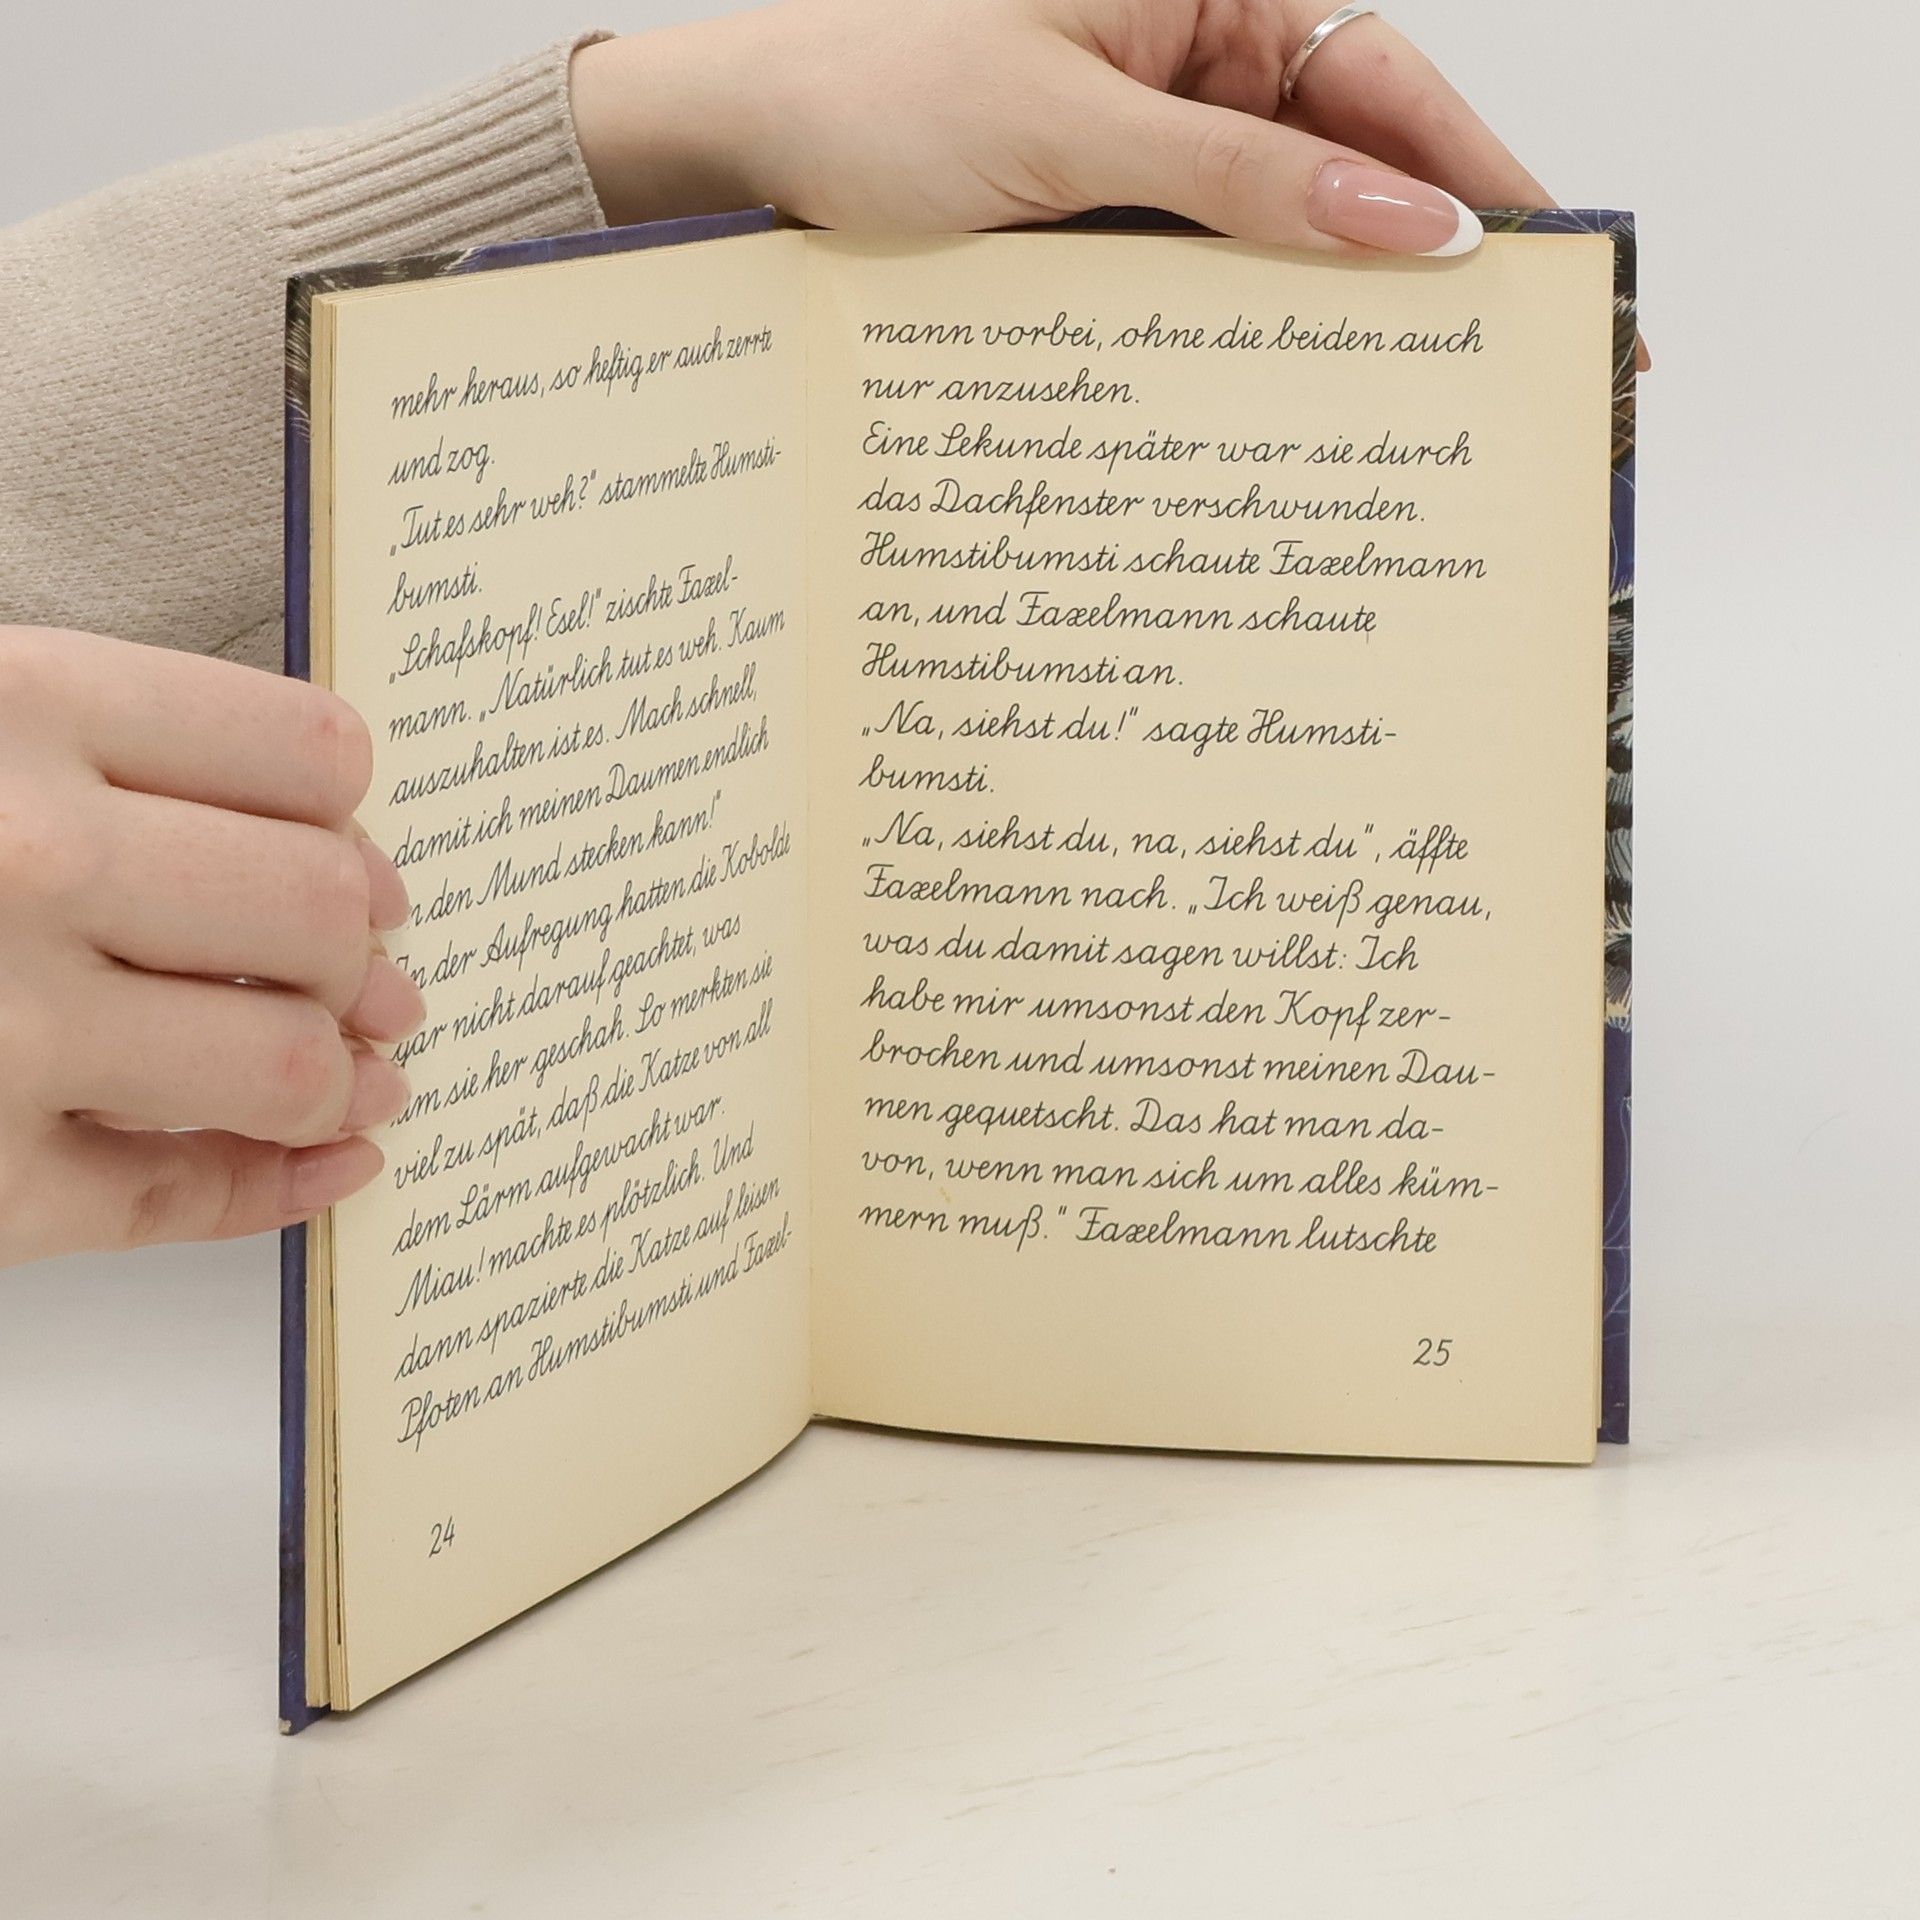 mehr heraus, so heftig er auch zerrte
und zog.
„Tut es sehr weh?“ stammelte Humsti-
bumsti.
„Schafskopf! Esel!“ zischte Faxel-
mann. „Natürlich tut es weh. Kaum
auszuhalten ist es. Mach schnell,
damit ich meinen Daumen endlich
den Mund stecken kann!“
In der Aufregung hatten die Kobolde
gar nicht darauf geachtet, was
um sie her geschah. So merkten sie
viel zu spät, daß die Katze von all
dem Lärm aufgewacht war.
Miau! machte es plötzlich. Und
dann spazierte die Katze auf leisen
Pfoten an Humstibumsti und Faxel-
24
mann vorbei, ohne die beiden auch
nur anzusehen.
Eine Sekunde später war sie durch
das Dachfenster verschwunden.
Humstibumsti schaute Faxelmann
an, und Faxelmann schaute
Humstibumsti an.
„Na, siehst du!“ sagte Humsti-
bumsti.
„Na, siehst du, na, siehst du“, äffte
Faxelmann nach. „Ich weiß genau,
was du damit sagen willst: Ich
habe mir umsonst den Kopf zer-
brochen und umsonst meinen Dau-
men gequetscht. Das hat man da-
von, wenn man sich um alles küm-
mern muß.“ Faxelmann lutschte
25